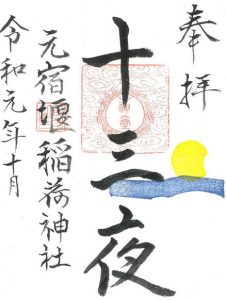 奉拝
十三夜
元宿堰稲荷神社
令和元年十月